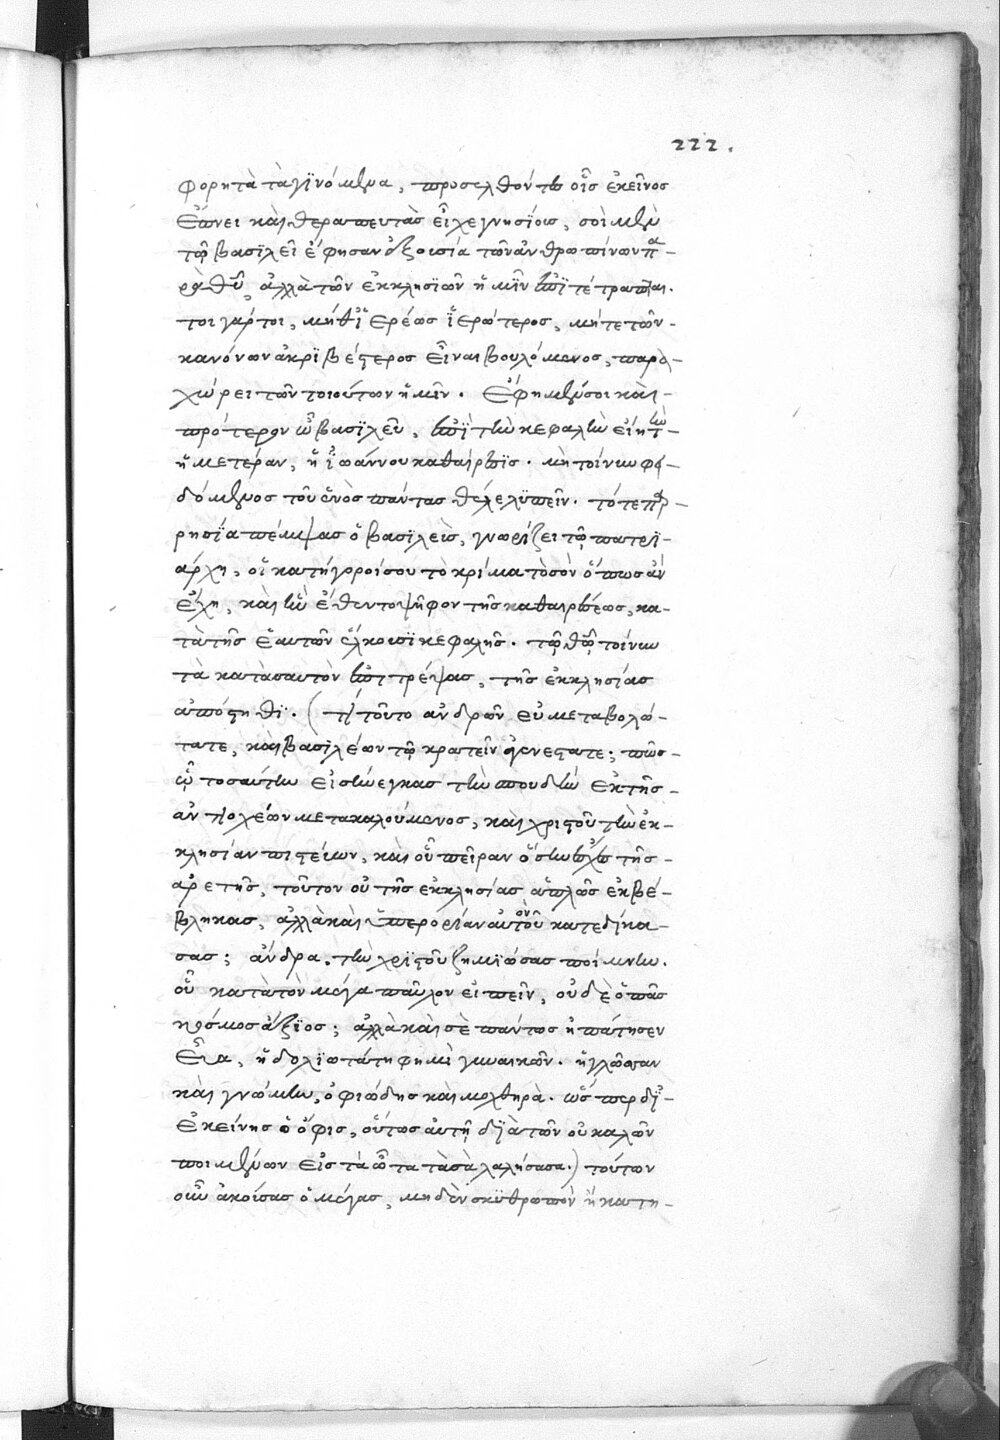 222.
φορητὰ τὰ γϊνόμενα, προσελθόντες οἷς ἐκεῖνος
ἐπνει καὶ θεραπευτὰς εἶχε γνησίοις, σοὶ μὲν
τῶ βασϊλεῖ ἔφησαν ἐξουσία τῶν ἀνθρωπίνων πα-
ρὰ θεοῦ, ἀλλὰ τῶν ἐκκλησιῶν ἡμῖν ἐπϊτέτραπται.
τοιγάρτοι, μήθ' ἱερέως ἱερώτερος, μήτε τῶν-
κανόνων ἀκρϊβέστερος εἶναι βουλόμενος, παρα-
χώρει τῶν τοιούτων ἡμῖν. ἔφημέν σοι καὶ-
πρότερον ὦ βασϊλεῦ, ἐπϊ τὴν κεφαλὴν εἴη τὴν-
ἡμετέραν, ἡ ἰωάννου καθαίρεσϊς. μὴ τοίνυν φει-
δόμενος τοῦ ἑνὸς πάντας θέλε λϋπεῖν. τότε παρ-
ρησία πέμψας ὁ βασϊλεὺς, γνωρίζει τῶ πατρι-
άρχη, οἱ κατήγοροί σου τὸ κρίμα τὸ σὸν ὅπως ἂν
ἔχη, καὶ ἣν ἔθεντο ψῆφον τῆς καθαιρέσεως, κα-
τὰ τῆς ἑαυτῶν ἕλκουσϊ κεφαλῆς. τῶ θεῶ τοίνυν
τὰ κατὰ σαυτὸν ἐπιτρέψας, τῆς ἐκκλησίας
ἀπόστηθϊ. (τί τοῦτο ἀνδρῶν εὐμεταβολώ-
τατε, καὶ βασϊλέων τῶ κρατεῖν ἀγενέστατε; πῶς-
ὧ τοσαύτην εἰσήνεγκας τὴν σπουδὴν ἐκ τῆς-
ἀντιοχέων μετακαλούμενος, καὶ χριστοῦ τὴν ἐκ-
κλησίαν πιστεύων, καὶ οὗ πεῖραν ὅσην ἔσχες τῆς-
ἀρετῆς, τοῦτον οὐ τῆς ἐκκλησίας ἁπλῶς ἐκβέ-
βληκας, ἀλλὰ καὶ ὑπερορίαν αὐτοῦ κατεδίκα-
σας; ἄνδρα. τὴν χρϊστοῦ ζημϊώσας ποίμνην.
οὗ κατὰ τὸν μέγα παῦλον εἰπεῖν, οὐδὲ ὁ πᾶς
κόσμος ἄξϊος; ἀλλὰ καὶ σὲ πάντως ἠπάτησεν
εὔα, ἡ δολϊωτάτη φημὶ γυναικῶν. ἡ γλῶσσαν
καὶ γνώμην, ὀφιώδης καὶ μοχθηρὰ. ὥσπερ δϊ-
ἐκείνης ὁ ὄφις, οὕτως αὐτὴ δϊὰ τῶν οὐ καλῶν
ποιμένων εἰς τὰ ὦτα τὰ σὰ λαλήσασα.) τούτων
οὖν ἀκούσας ὁ μέγας, μηδὲν σκϋθρωπὸν ἢ κατη-